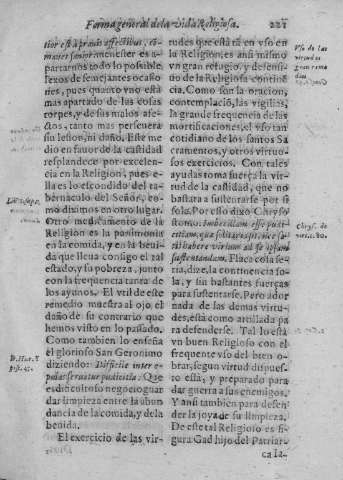 Forma general de la Vida Religiosa. 221
tior est à prauis affectibus, cō-
mauer senior menester es a-
partarnos todo lo posible,
lexos de semejantes ocasio
nes, pues quanto vno está
mas apartado de las cosas
torpes, y de sus malos afe-
ctos, tanto mas perseuera
su lesion, ni daño. Este me
dio en fauor de la castidad
resplandece por excelen-
cia en la Religion, pues e-
lla es lo escondido del ta-
bernaculo del Señor, co-
mo diximos en otro lugar.
Otro medicamento de la
Religion es la parsimonia
en la comida, y en la beui-
da que lleua consigo el tal
estado, y su pobreza, junto
con la frequencia tanta de
los ayunos. El vtil de este
remedio muestra al ojo el
daño de su contrario que
hemos visto en lo passado.
Como tambien lo enseña
el glorioso San Geronimo
diziendo: Difficile inter e
pulas seruatur pudicitia: Que
es dificultoso negocio guar
dar limpieza entre la abun
dancia de la comida, y de la
beuida.
El exercicio de las vir-
tudes que està en vso en
la Religion, es ansi mismo
vn gran refugio, y defensi-
uo de la Religiosa contine
cia. Como son la oracion,
contemplaciō, las vigilias,
la grande frequencia de las
mortificaciones, el vso tan
cotidiano de los santos Sa
cramentos, y otros virtuo-
sos exercicios. Con tales
ayudas toma fuerça la vir-
tud de la castidad, que no
bastara a sustentarse por si
sola. Por esso dixo Chrysos
tomo: Imbecillam esse pudi-
citiam, quæ solitaria sit, nec sa-
tis habere virium ad se ipsam
sustentandam. Flaca cosa se-
ria, dize, la continencia so-
la, y sin bastantes fuerças
para sustentarse. Pero ador
nada de las demas virtu-
des, està como artillada pa
ra defenderse. Tal lo està
vn buen Religioso con el
frequente vso del bien o-
brar, segun virtud dispues-
to està, y preparado para
dar guerra a sus enemigos.
Y ansi tambien para defen-
der la joya de su limpieza.
De este tal Religioso es fi-
gura Gad hijo del Patriar-
ca Ia-
Vso de las
virtudes
gran reme
dio.
Chrys. de
D. Hier.